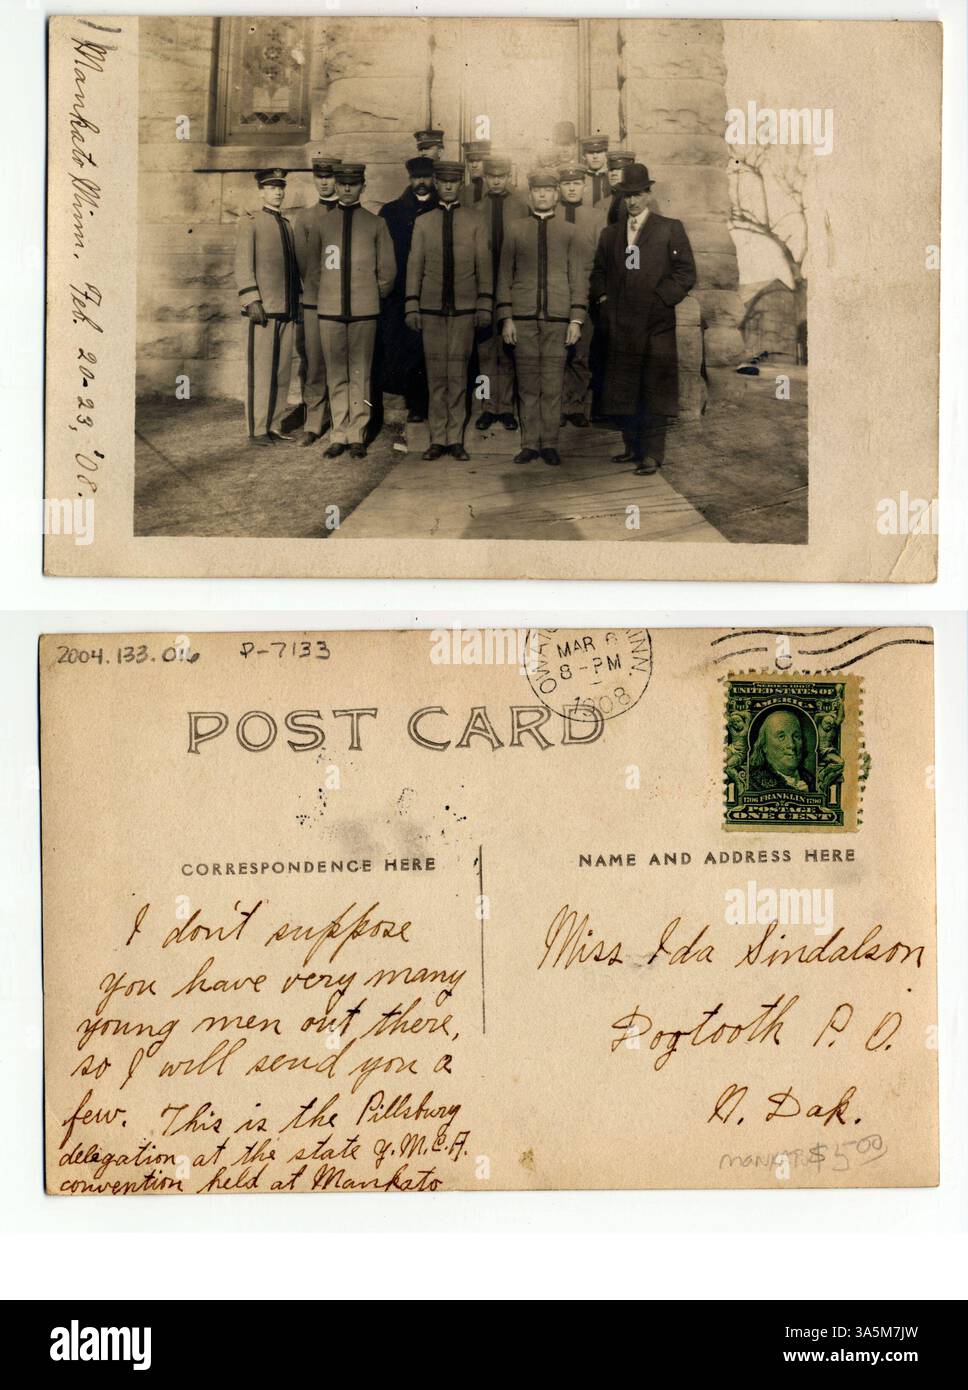 Mankato Minn. Feb. 20-23, '08.
2004.133.016 P-7133
MAR 6
8-PM
1908
MINN.
POST CARD
SERIES 1902
UNITED STATES OF
AMERICA
1 1
1706 FRANKLIN 1790
POSTAGE
ONE CENT
CORRESPONDENCE HERE
NAME AND ADDRESS HERE
I don't suppose
you have very many
young men out there,
so I will send you a
few. This is the Pillsbury
delegation at the state Y.M.C.A.
convention held at Mankato
Miss Ida Sindalson
Dogtooth P. O.
N. Dak.
MANKATO $5.00
alamy
a
alamy
Image ID: 3A5M7JW
www.alamy.com